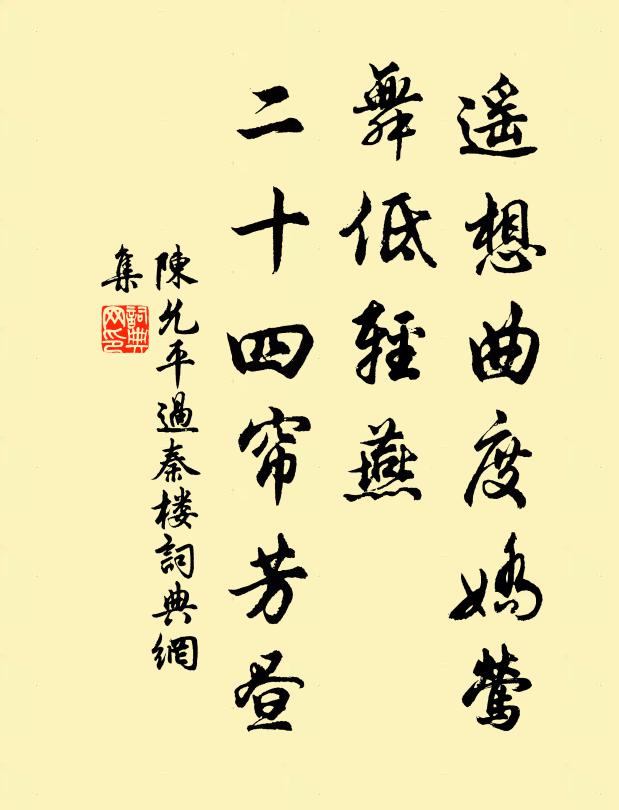 遥想曲度嬌鶯
舞低輕燕
二十四帘芳昼
陳允平過秦楼詞典網
集
詞典网印